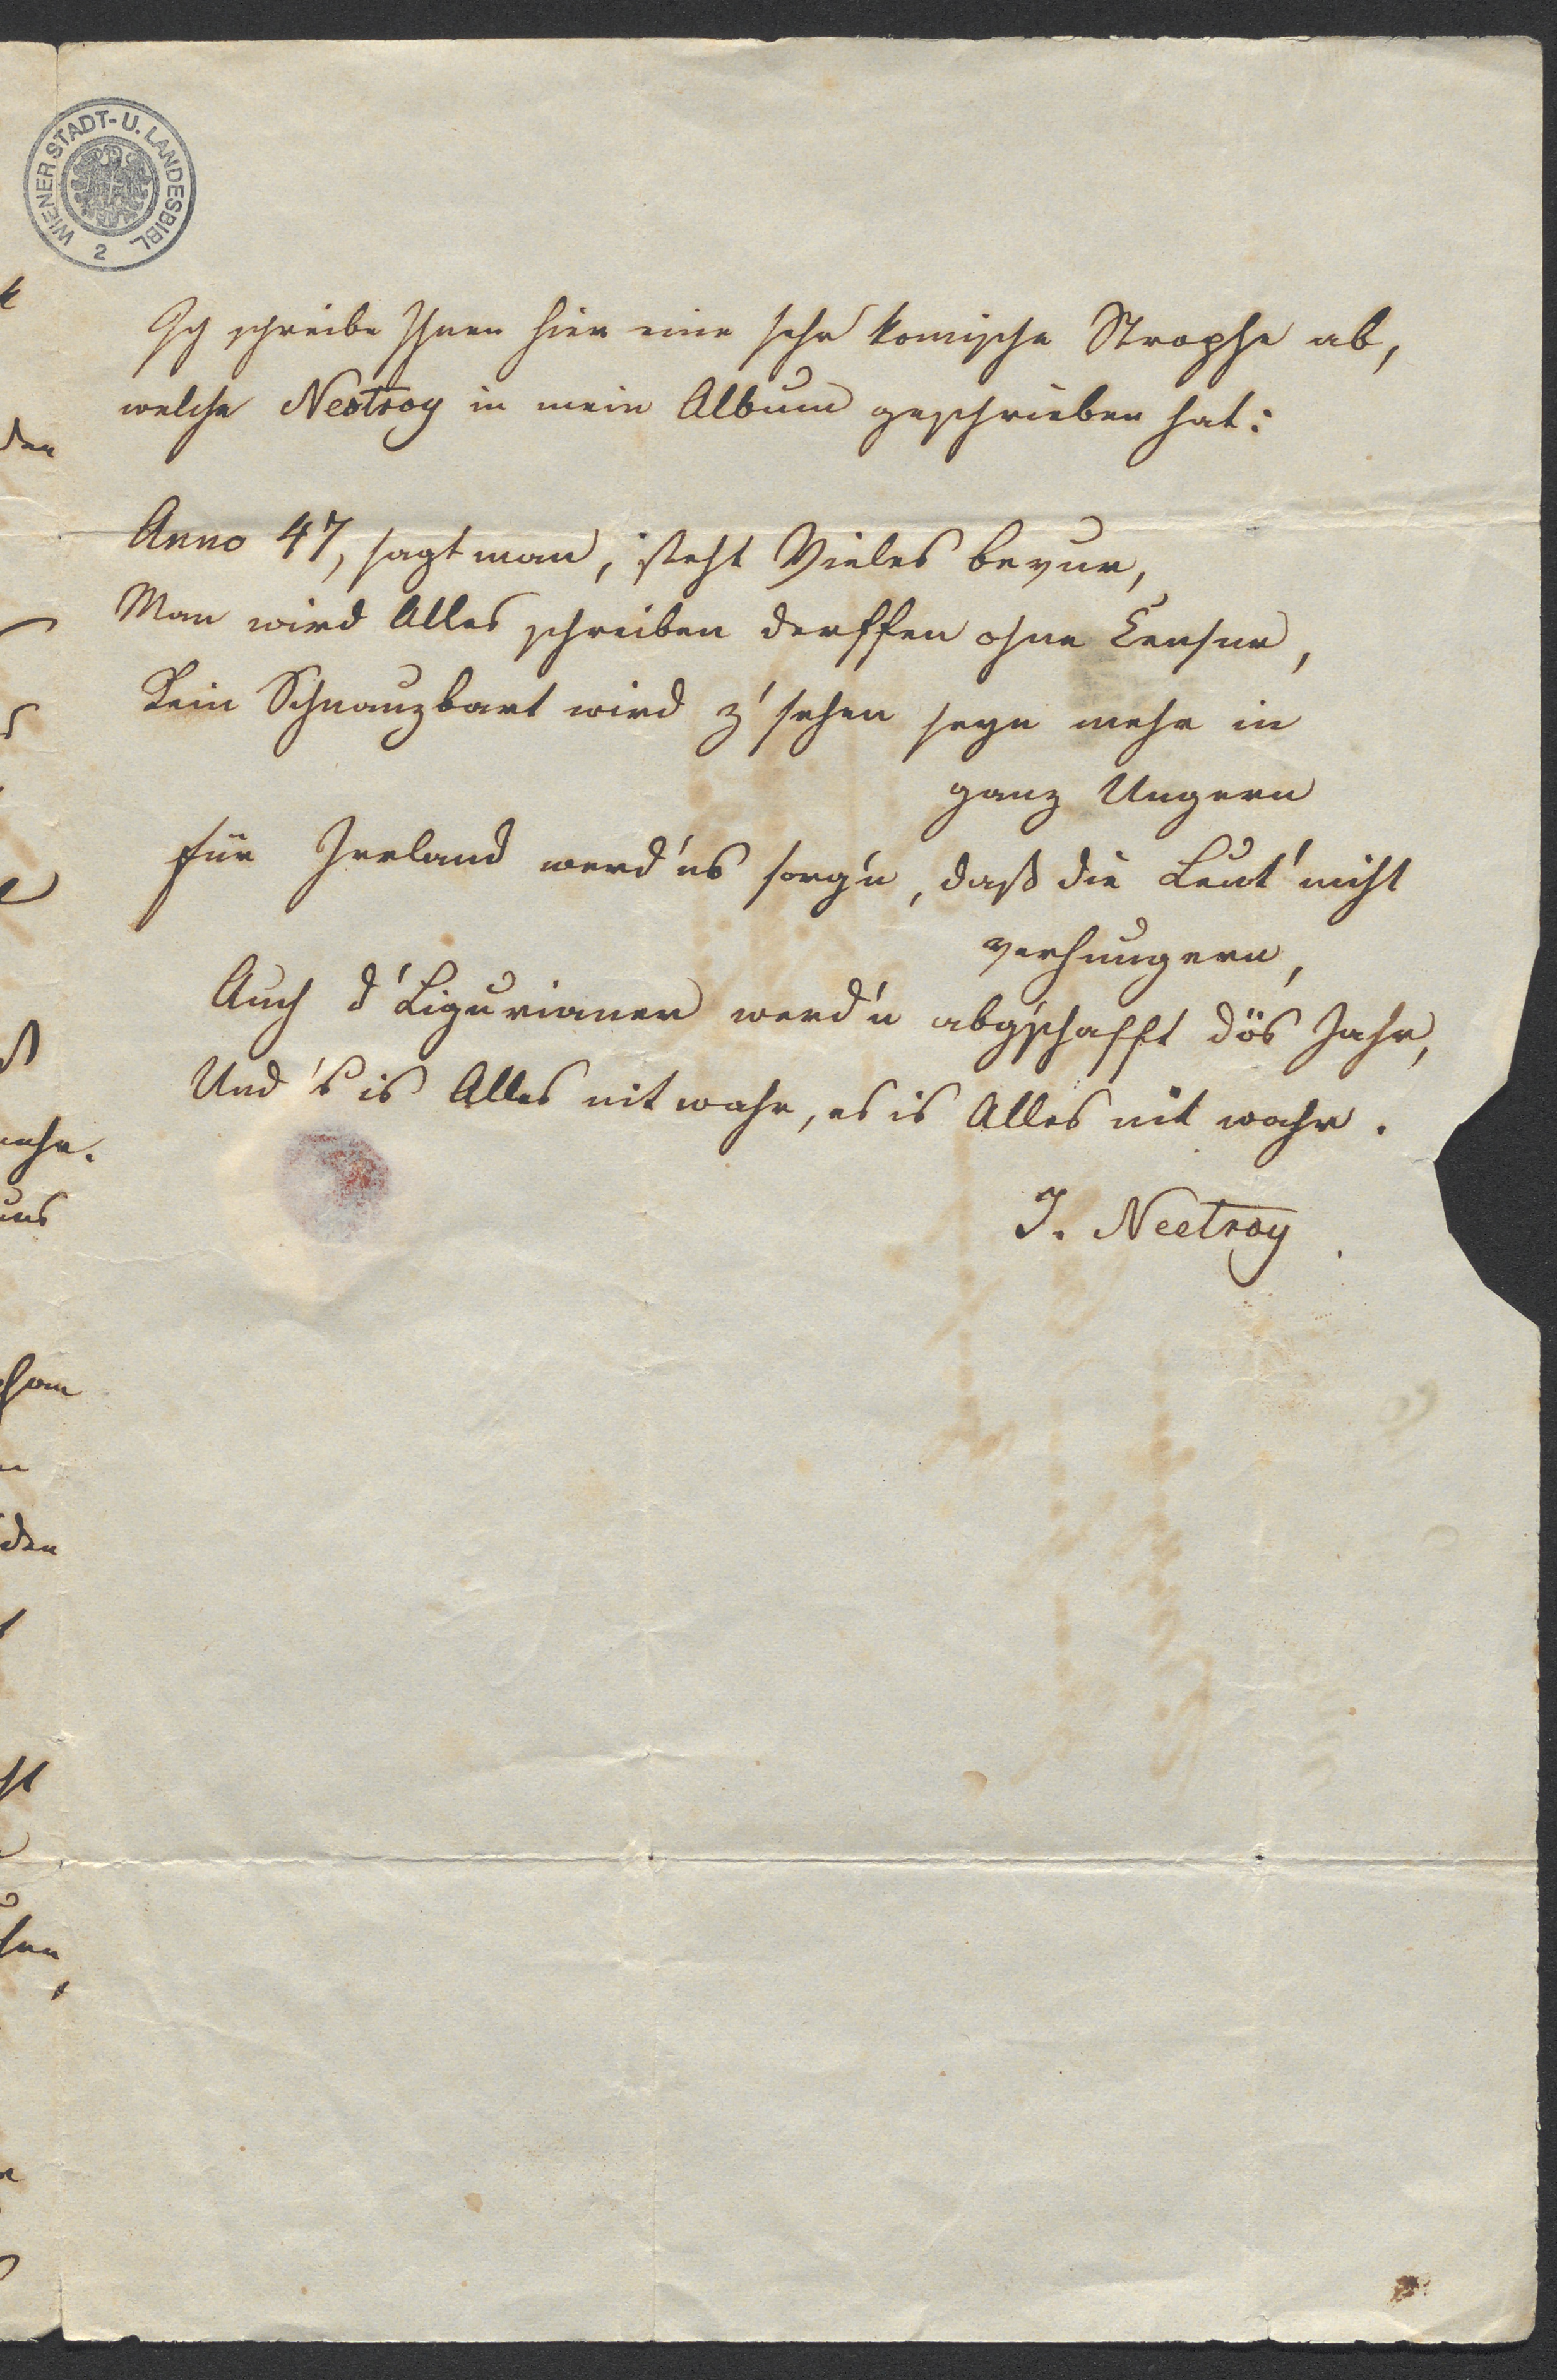 WIENER STADT- U. LANDESBIBL.
2
Ich schreibe Ihnen hier eine sehr komische Strophe ab,
welche Nestroy in mein Album geschrieben hat:
Anno 47, sagt man, steht Vieles bevur,
Man wird Alles schreiben derffen ohne Censur,
Kein Schnauzbart wird z'sehen seyn mehr in
ganz Ungern
für Irrland werd'ns sorg'n, daß die Leut' nicht
verhungern,
Auch d'Ligurianer werd'n abg'schafft dös Jahr,
Und 's is Alles nit wahr, es is Alles nit wahr.
J. Nestroy.